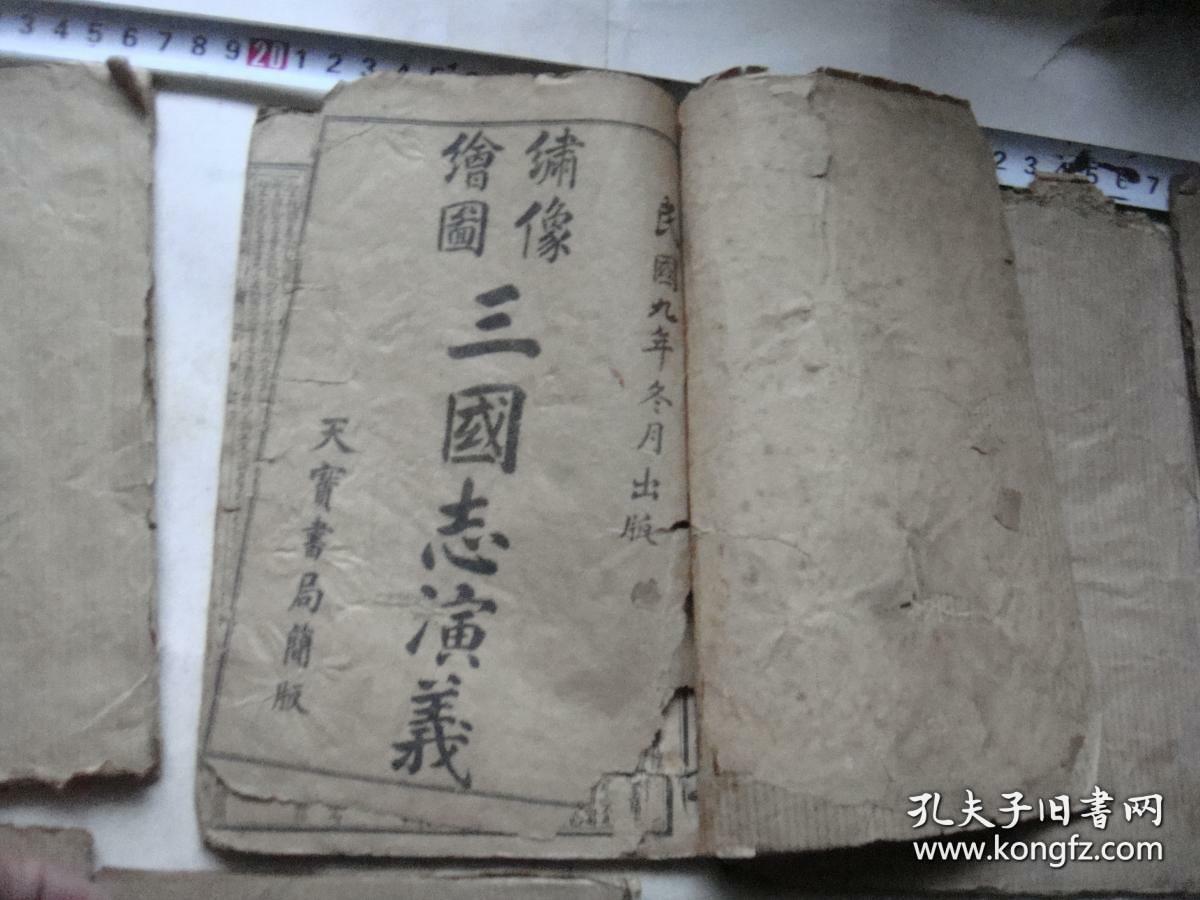 民國九年冬月出版
繡像
繪圖
三國志演義
天寶書局簡版
3 4 5 6 7 8 9 20 1 2 3 4 5
2 3 4 5 6 7
孔夫子旧书网
www.kongfz.com